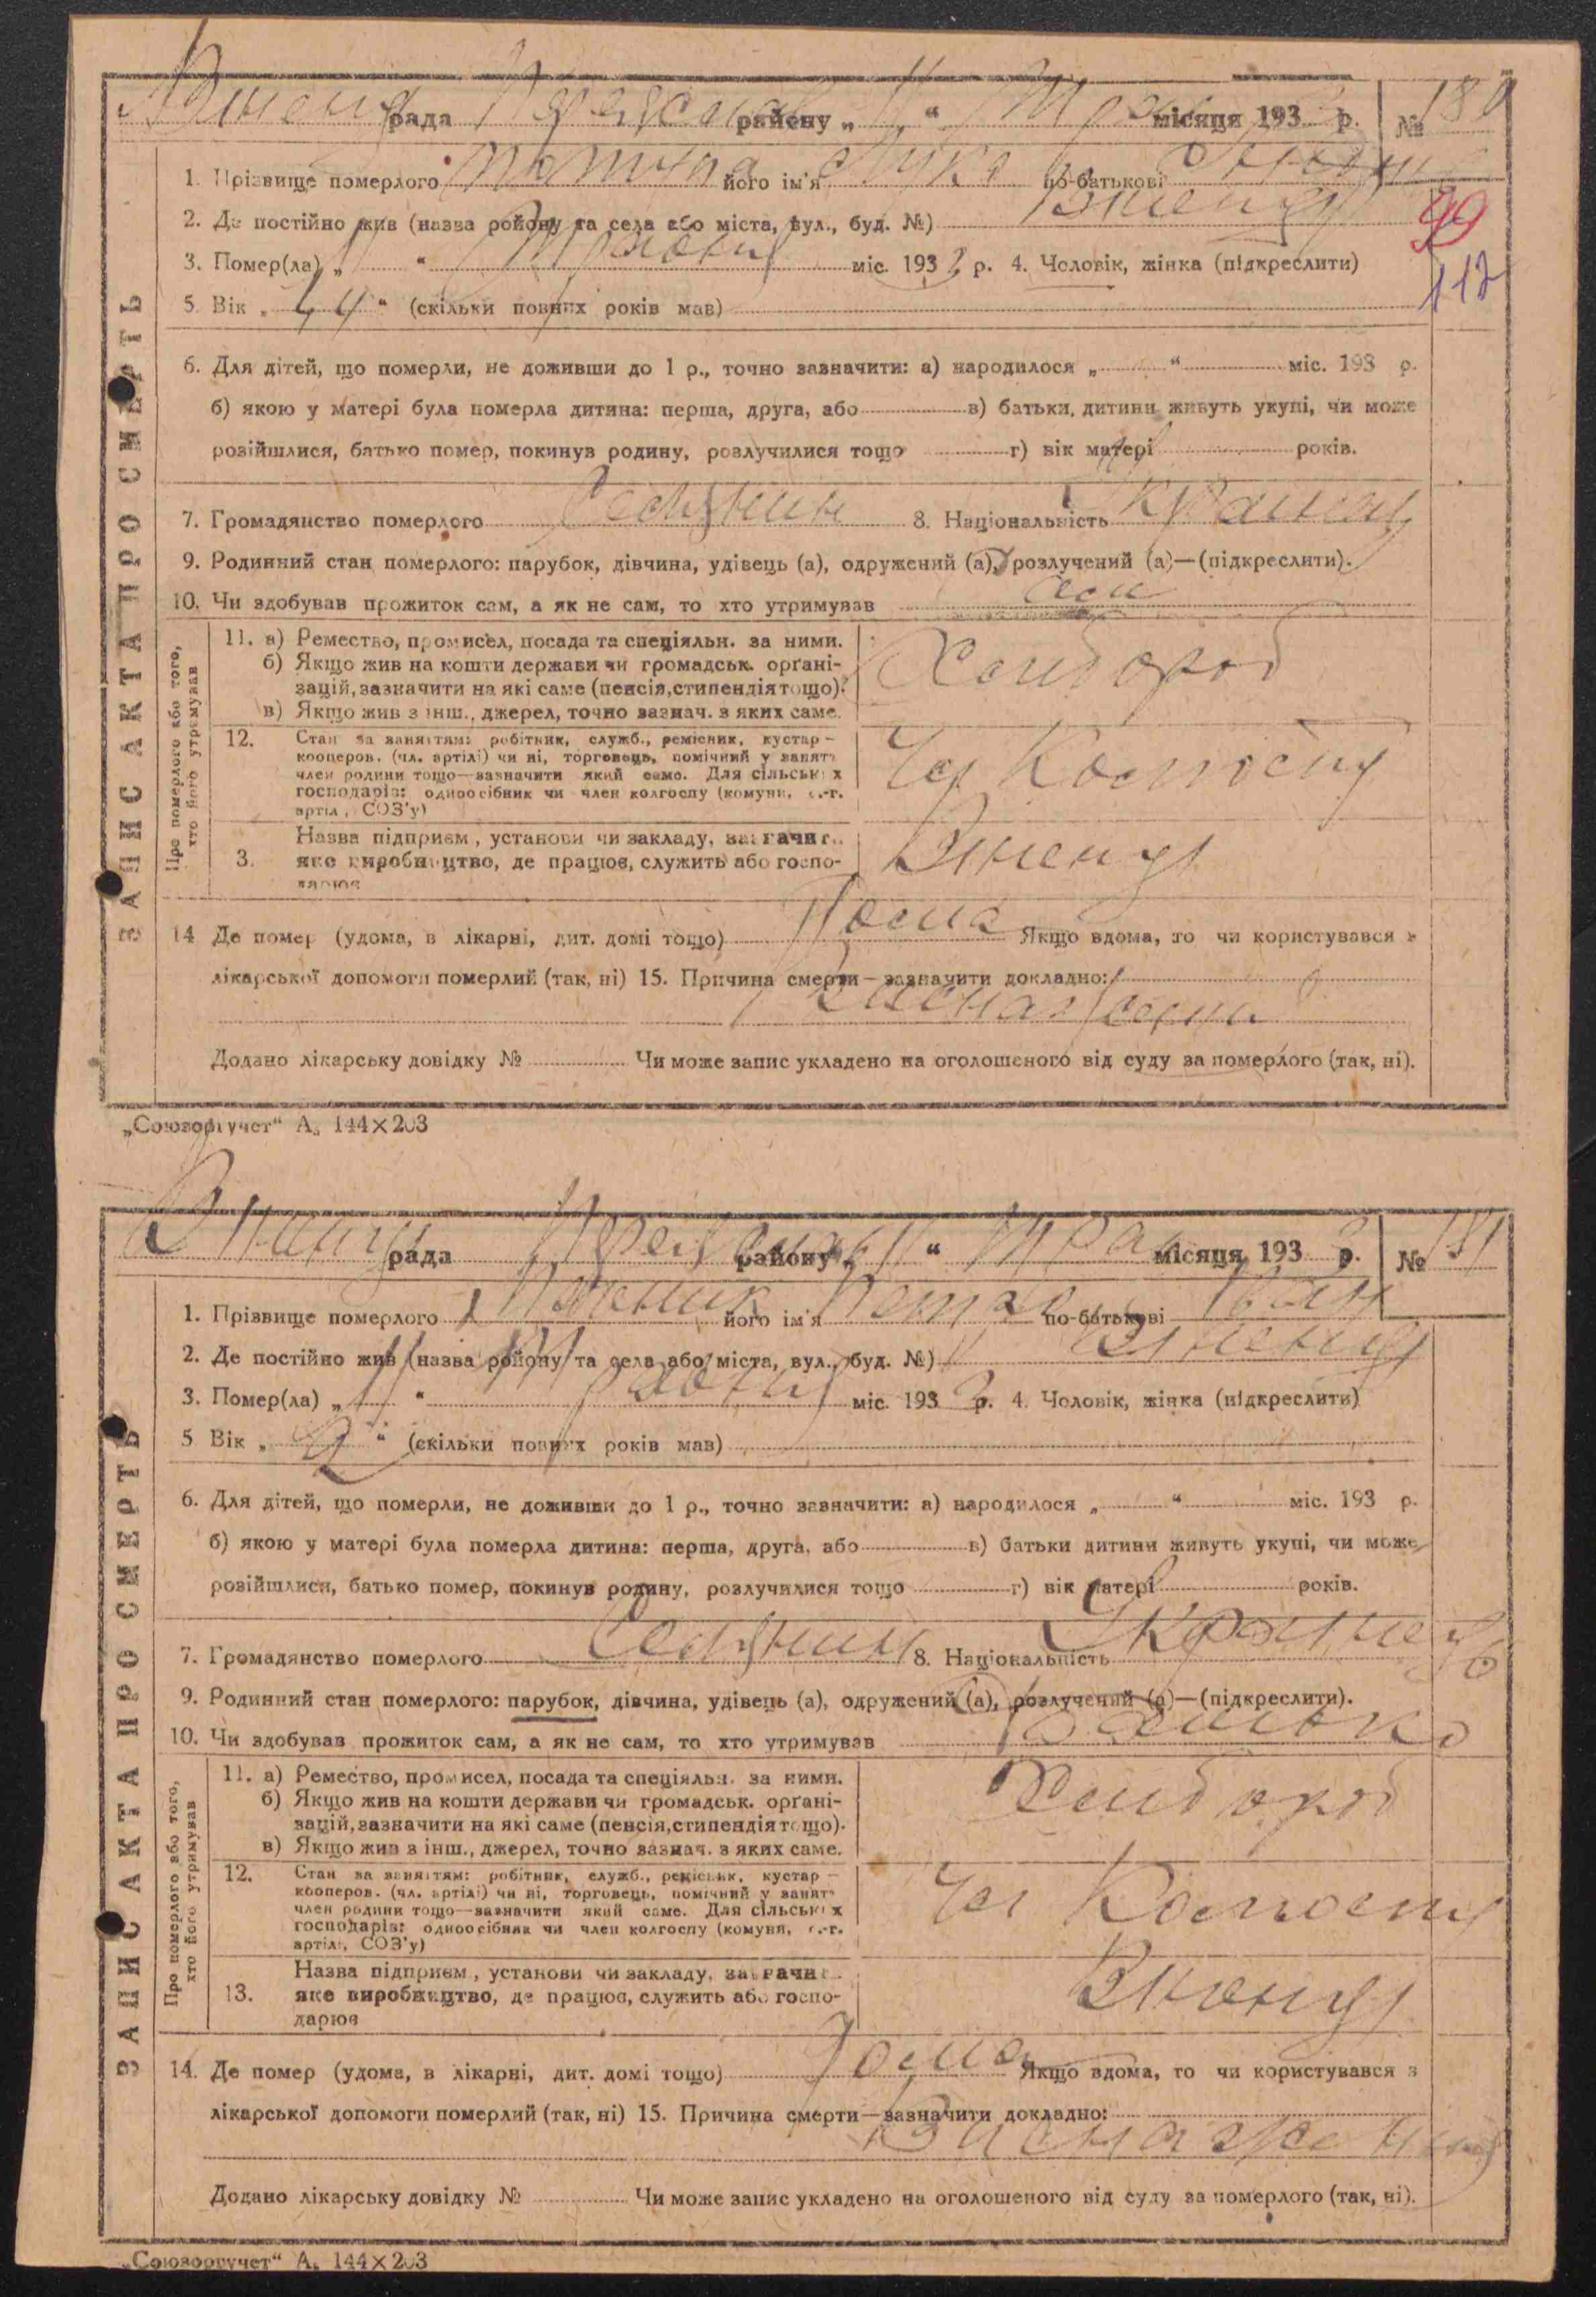 рада району „ “ місяця 193 р. № 180
1. Прізвище померлого його ім'я Лука по-батькові
2. Де постійно жив (назва ройону та села або міста, вул., буд. №)
99
3. Помер(ла) „ “ міс. 1933 р. 4. Чоловік, жінка (підкреслити)
112
5. Вік „ “ (скільки повних років мав)
6. Для дітей, що померли, не доживши до 1 р., точно зазначити: а) народилося „ “ міс. 193 р.
б) якою у матері була померла дитина: перша, друга, або в) батьки, дитини живуть укупі, чи може
розійшлися, батько помер, покинув родину, розлучилися тощо г) вік матері років.
7. Громадянство померлого 8. Національність
9. Родинний стан померлого: парубок, дівчина, удівець (а), одружений (а), розлучений (а)—(підкреслити).
10. Чи здобував прожиток сам, а як не сам, то хто утримував сам
11. а) Ремество, промисел, посада та спеціяльн. за ними.
б) Якщо жив на кошти держави чи громадськ. орґані-
зацій, зазначити на які саме (пенсія, стипендія тощо).
в) Якщо жив з інш., джерел, точно зазнач. з яких саме.
Хлібороб
12. Стан за заняттям: робітник, служб., ремісник, кустар —
кооперов. (чл. артілі) чи ні, торговець, помічний у занятт
член родини тощо—зазначити який само. Для сільських
господарів: одноосібник чи член колгоспу (комуни, с.-г.
артіл, СОЗ'у)
Чл Колгоспу
3. Назва підприєм, установи чи закладу, зазначит
яке виробництво, де працює, служить або госпо-
дарює
14 Де помер (удома, в лікарні, дит. домі тощо) Дома Якщо вдома, то чи користувався з
лікарської допомоги померлий (так, ні) 15. Причина смерти—зазначити докладно:
Додано лікарську довідку № Чи може запис укладено на оголошеного від суду за померлого (так, ні).
ЗАПИС АКТА ПРО СМЕРТЬ
Про померлого або того,
хто його утримував
„Союзоргучет“ А₅ 144×203
рада району „ “ місяця 1933 р. № 181
1. Прізвище померлого його ім'я Петро по-батькові Іван
2. Де постійно жив (назва ройону та села або міста, вул., буд. №)
3. Помер(ла) „ “ міс. 1933 р. 4. Чоловік, жінка (підкреслити)
5 Вік „ 2 “ (скільки повних років мав)
6. Для дітей, що померли, не доживши до 1 р., точно зазначити: а) народилося „ “ міс. 193 р.
б) якою у матері була померла дитина: перша, друга, або в) батьки дитини живуть укупі, чи може
розійшлися, батько помер, покинув родину, розлучилися тощо г) вік матері років.
7. Громадянство померлого 8. Національність
9. Родинний стан померлого: парубок, дівчина, удівець (а), одружений (а), розлучений (а)—(підкреслити).
10. Чи здобував прожиток сам, а як не сам, то хто утримував Батько
11. а) Ремество, промисел, посада та спеціяльн. за ними.
б) Якщо жив на кошти держави чи громадськ. орґані-
зацій, зазначити на які саме (пенсія, стипендія тощо).
в) Якщо жив з інш., джерел, точно зазнач. з яких саме.
Хлібороб
12. Стан за заняттям: робітник, служб., ремісник, кустар —
кооперов. (чл. артілі) чи ні, торговець, помічний у занятт
член родини тощо—зазначити який саме. Для сільських
господарів: одноосібник чи член колгоспу (комуни, с.-г.
артілі, СОЗ'у)
Чл Колгоспу
13. Назва підприєм, установи чи закладу, зазначит
яке виробництво, де працює, служить або госпо-
дарює
14. Де помер (удома, в лікарні, дит. домі тощо) Дома Якщо вдома, то чи користувався з
лікарської допомоги померлий (так, ні) 15. Причина смерти—зазначити докладно:
Виснаження
Додано лікарську довідку № Чи може запис укладено на оголошеного від суду за померлого (так, ні).
ЗАПИС АКТА ПРО СМЕРТЬ
Про померлого або того,
хто його утримував
„Союзоргучет“ А₅ 144×203